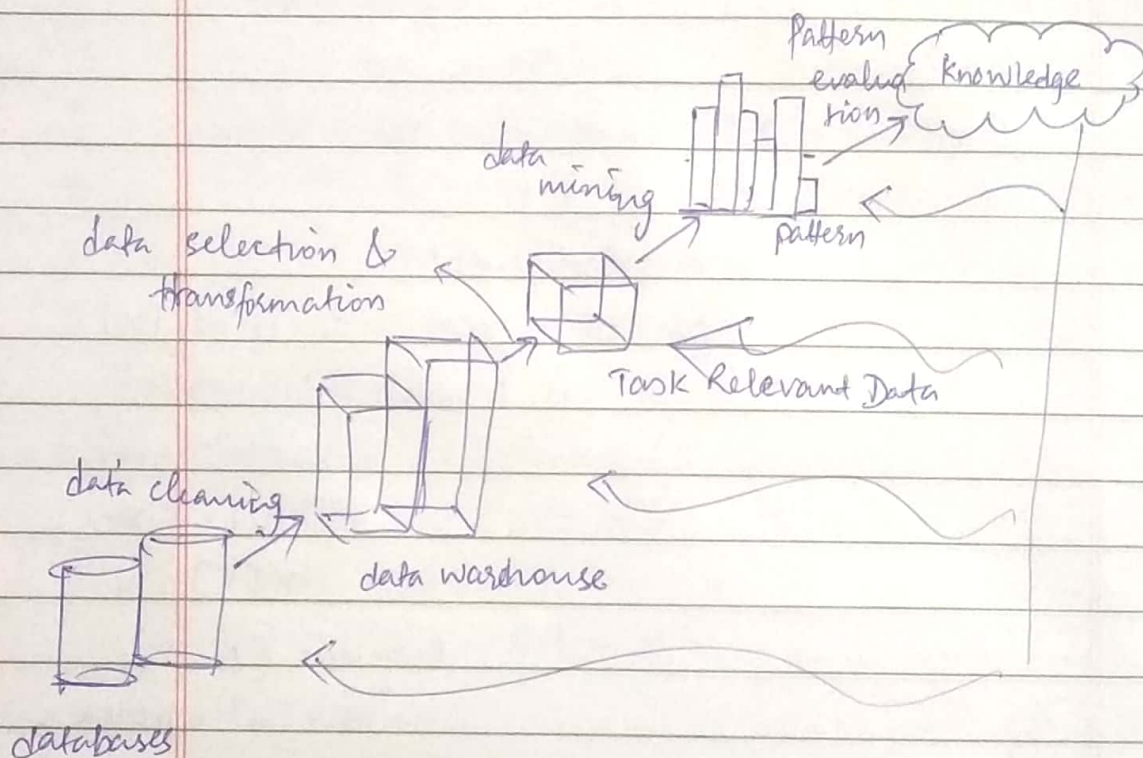 Pattern
evalua
tion
Knowledge
data
mining
pattern
data selection &
transformation
Task Relevant Data
data cleaning
data warehouse
databases